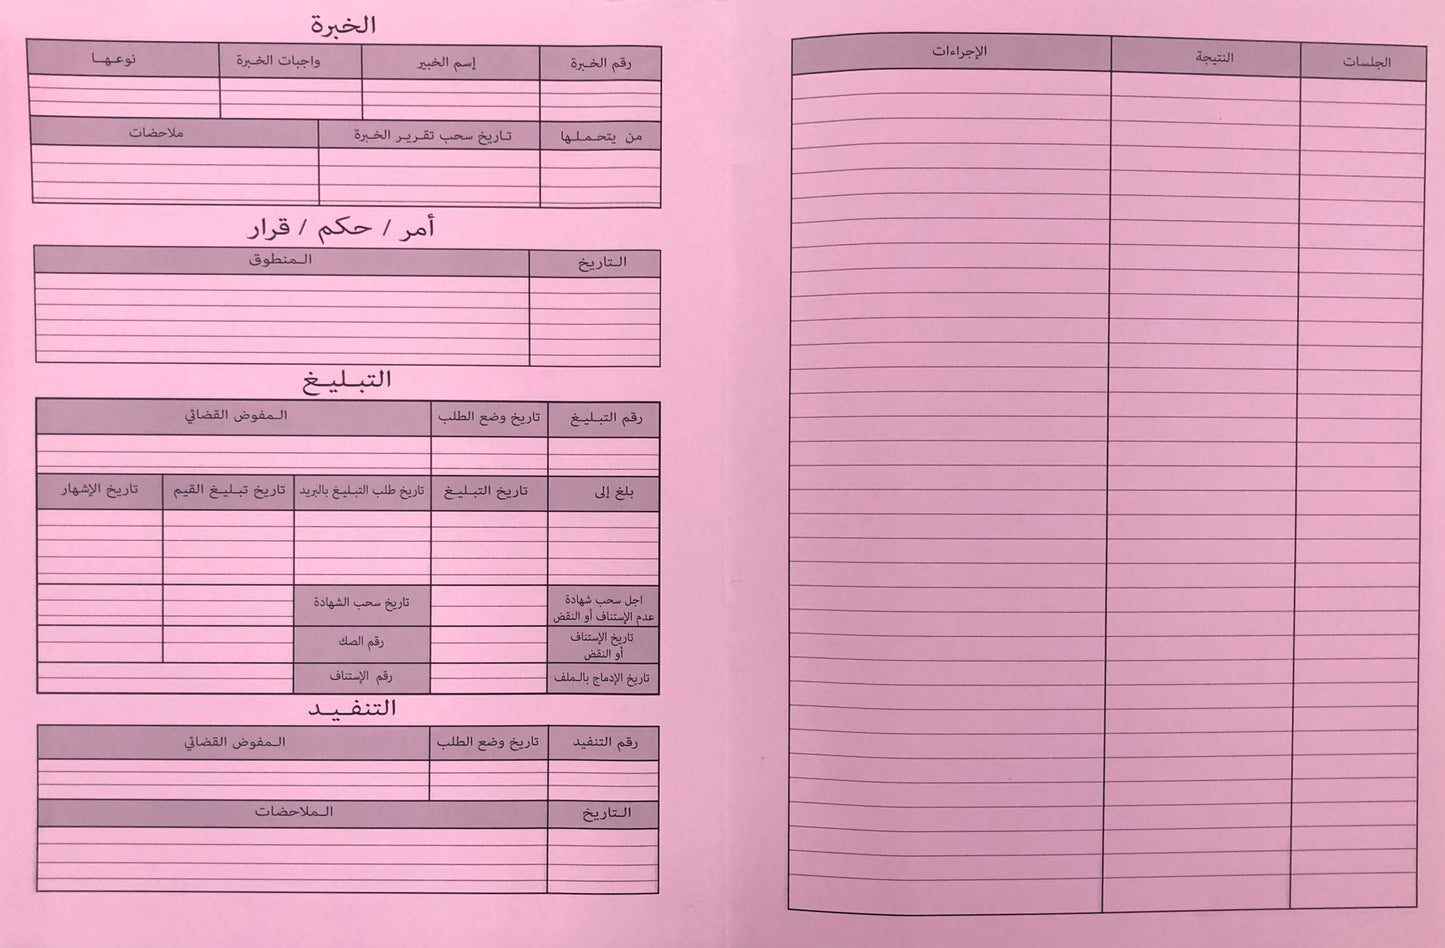 الجلسات النتيجة الإجراءات
الخبرة
رقم الخبرة إسم الخبير واجبات الخبرة نوعها
من يتحملها تاريخ سحب تقرير الخبرة ملاحضات
أمر / حكم / قرار
التاريخ المنطوق
التبليغ
رقم التبليغ تاريخ وضع الطلب المفوض القضائي
بلغ إلى تاريخ التبليغ تاريخ طلب التبليغ بالبريد تاريخ تبليغ القيم تاريخ الإشهار
اجل سحب شهادة تاريخ سحب الشهادة
عدم الإستناف أو النقض
تاريخ الإستناف رقم الصك
أو النقض
تاريخ الإدماج بالملف رقم الإستناف
التنفيد
رقم التنفيد تاريخ وضع الطلب المفوض القضائي
التاريخ الملاحضات